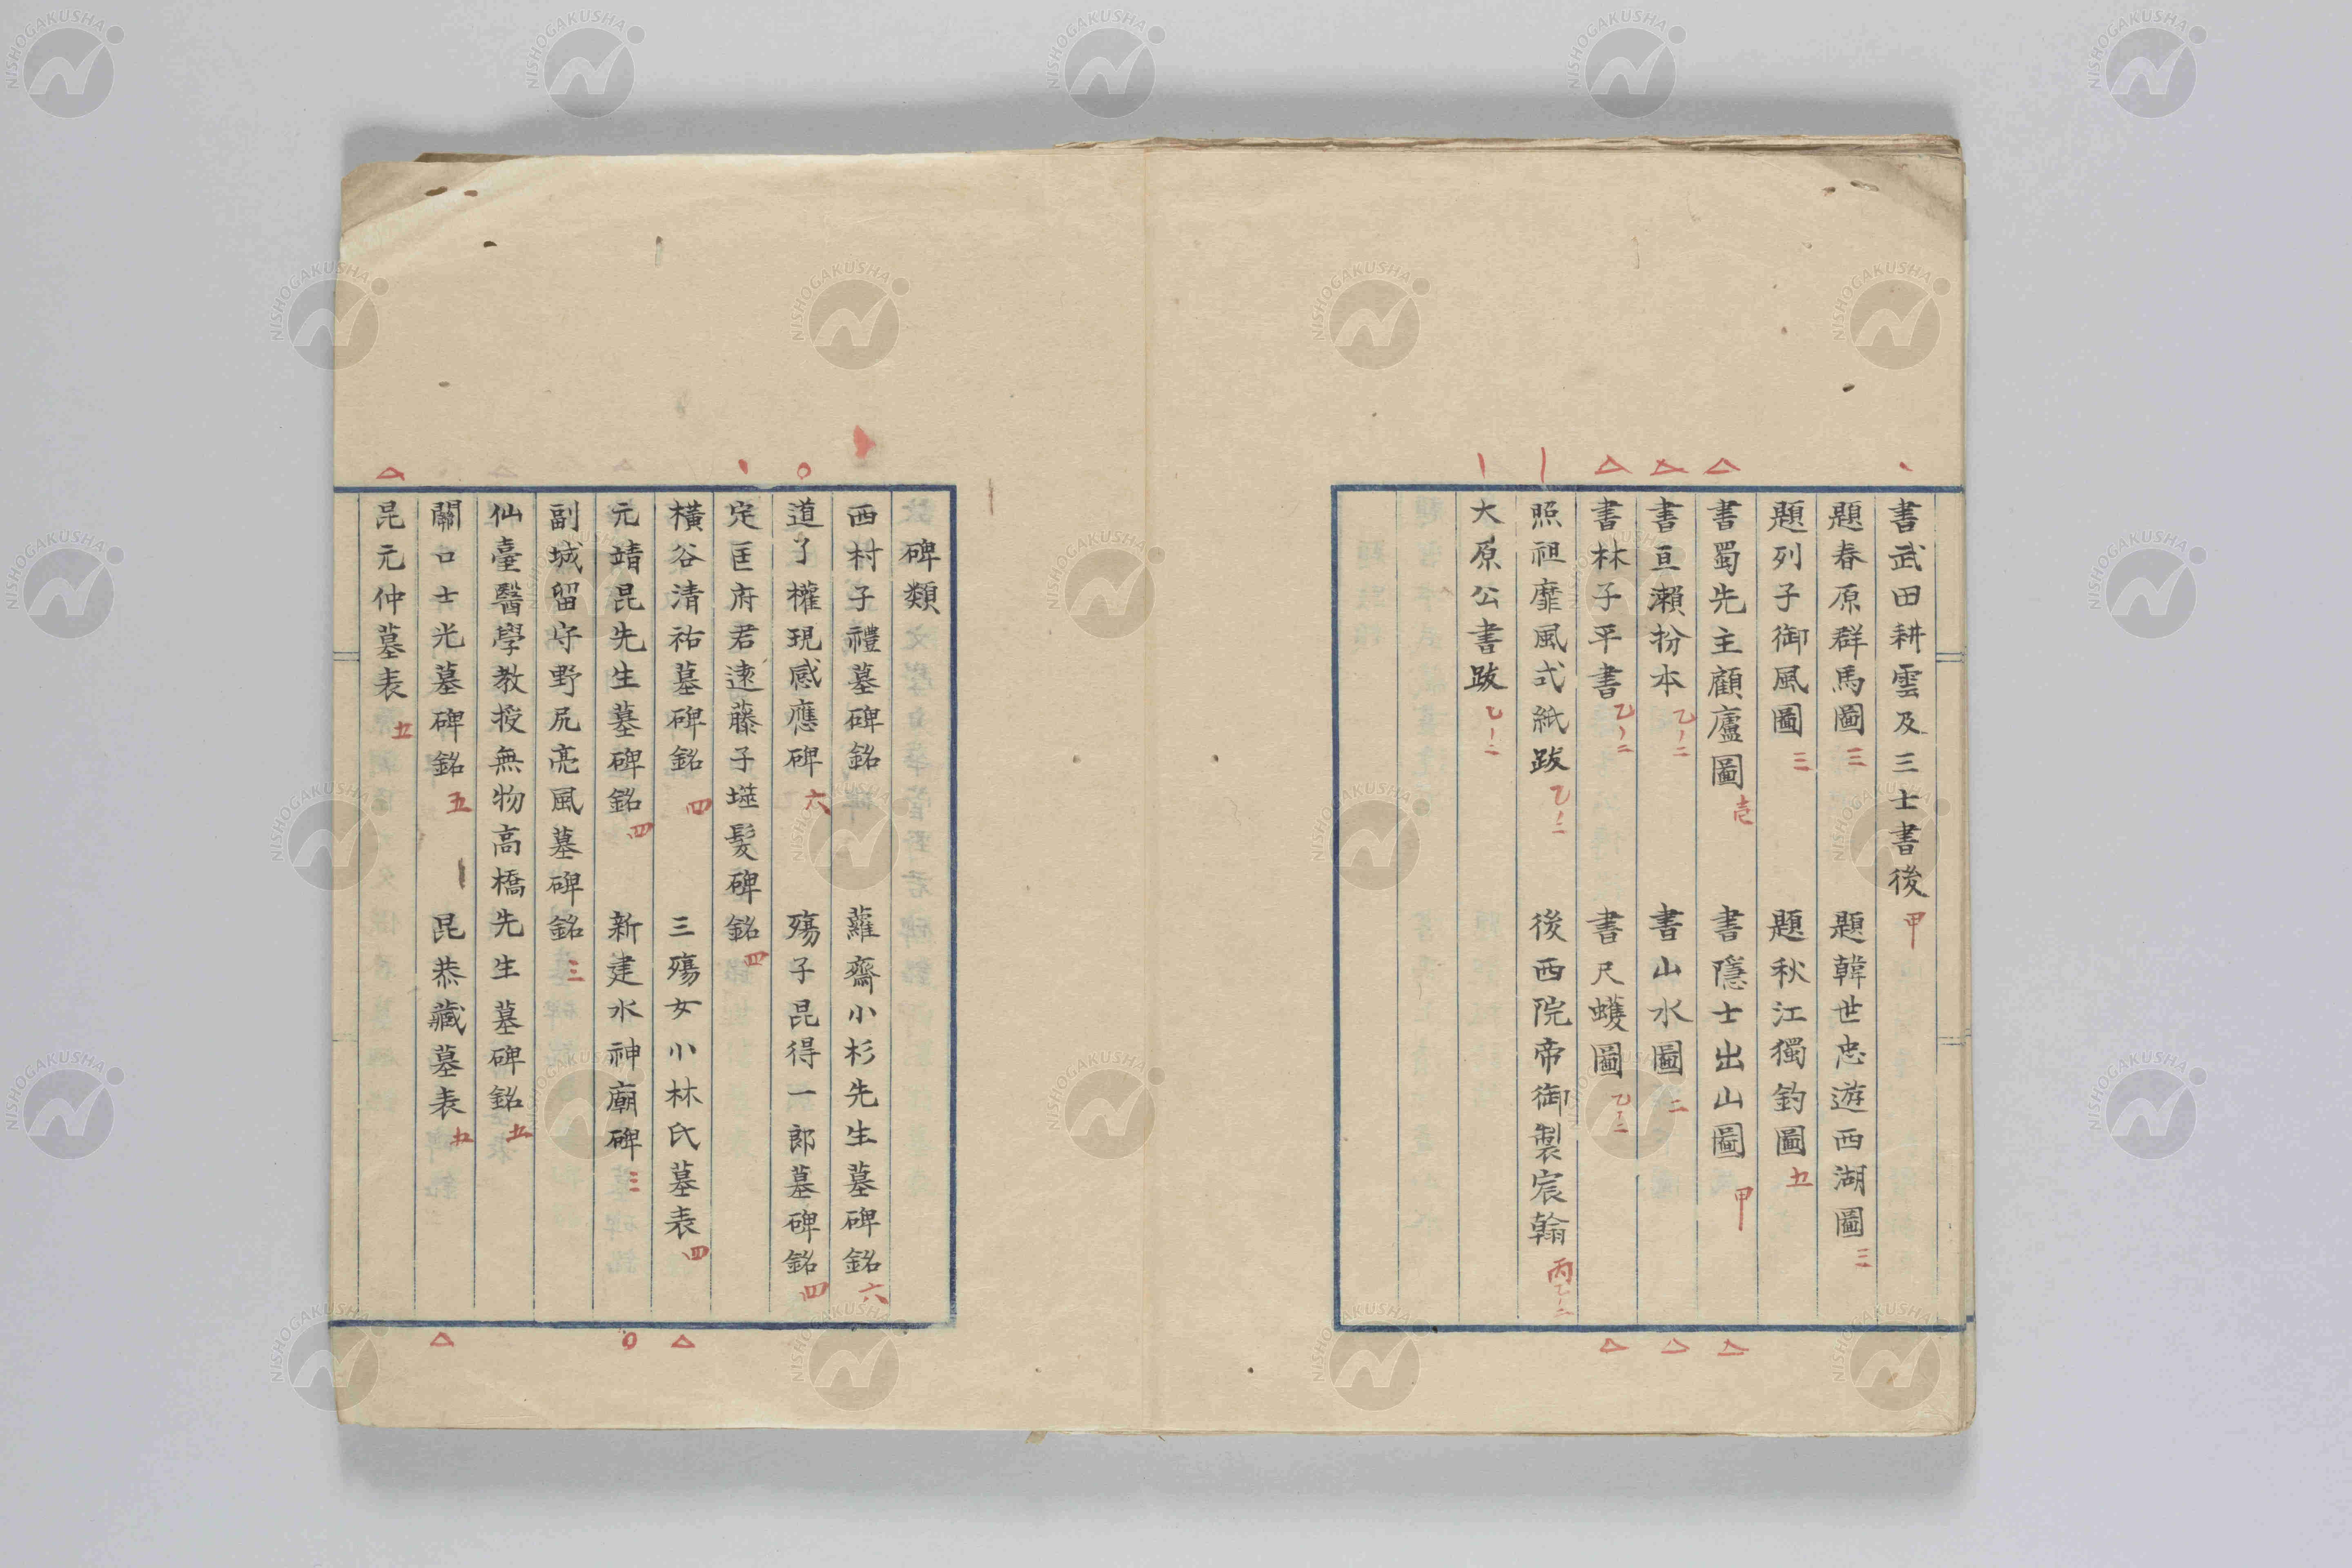 書武田耕雲及三士書後 甲
題春原群馬圖 三 題韓世忠遊西湖圖 三
題列子御風圖 三 題秋江獨釣圖 五
書蜀先主顧廬圖 壱 書隱士出山圖 甲
書亘瀬扮本 乙ノ二 書山水圖 二
書林子平書 乙ノ二 書尺蠖圖 乙ノ二
照祖靡風式紙跋 乙ノ二 後西院帝御製宸翰 丙乙ノ二
大原公書跋 乙ノ二
碑類
西村子禮墓碑銘 蘿齋小杉先生墓碑銘 六
道了權現感應碑 六 殤子昆得一郎墓碑銘 四
定匡府君遠藤子塟髮碑銘 四
橫谷清祐墓碑銘 四 三殤女小林氏墓表 四
元靖昆先生墓碑銘 四 新建水神廟碑 三
副城留守野尻亮風墓碑銘 三
仙臺醫學教授無物高橋先生墓碑銘 五
關口士光墓碑銘 五 昆恭藏墓表 五
昆元仲墓表 五
NISHOGAKUSHA